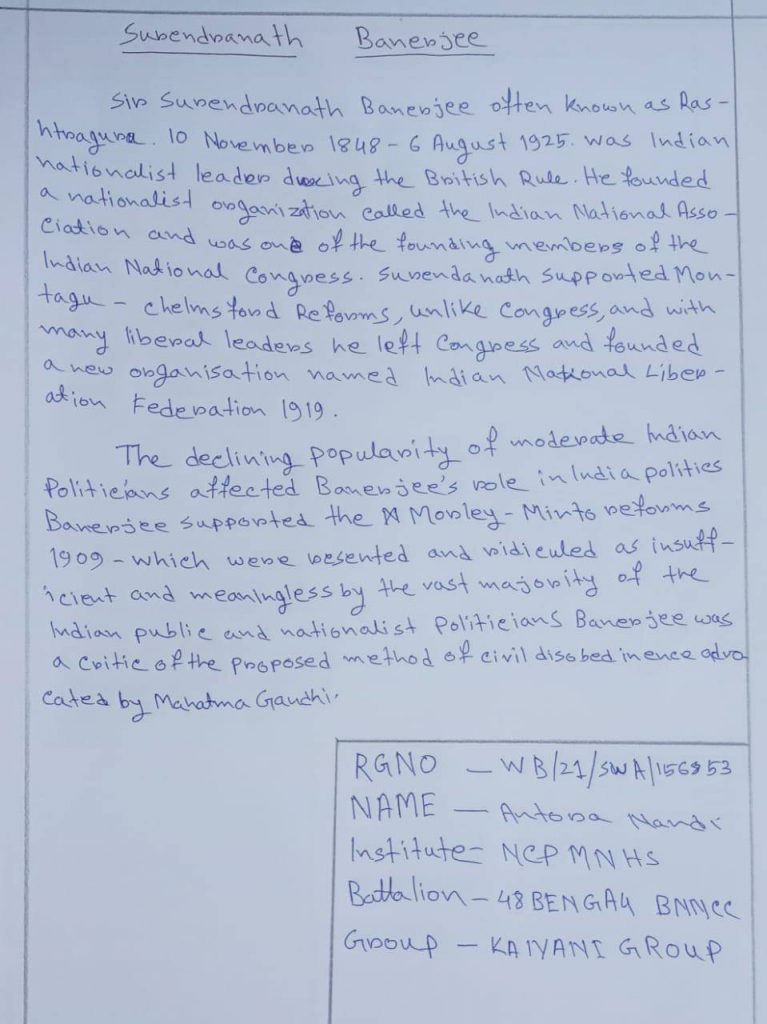 Surendranath Banerjee
Sir Surendranath Banerjee often known as Ras-
htraguru. 10 November 1848 - 6 August 1925. was Indian
nationalist leader during the British Rule. He founded
a nationalist organization called the Indian National Asso-
ciation and was one of the founding members of the
Indian National Congress. Surendanath supported Mon-
tagu - Chelmsford Reforms, unlike Congress, and with
many liberal leaders he left Congress and founded
a new organisation named Indian National Liber-
ation Federation 1919.
The declining popularity of moderate Indian
Politicians affected Banerjee's role in India polities
Banerjee supported the Morley-Minto reforms
1909 - which were resented and ridiculed as insuff-
icient and meaningless by the vast majority of the
Indian public and nationalist Politicians Banerjee was
a critic of the proposed method of civil disobedinence advo
cated by Mahatma Gandhi.
RGNO - WB/21/SWA/156953
NAME - Antora Nandi
Institute - NCPMNHS
Battalion - 48 BENGAL BNNCC
Group - KAIYANI GROUP